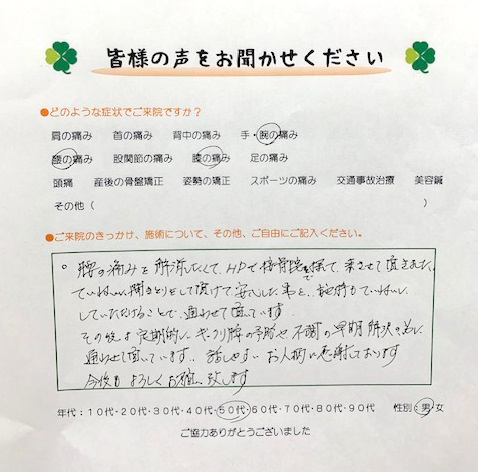 皆様の声をお聞かせください
●どのような症状でご来院ですか？
肩の痛み 首の痛み 背中の痛み 手・腕の痛み
腰の痛み 股関節の痛み 膝の痛み 足の痛み
頭痛 産後の骨盤矯正 姿勢の矯正 スポーツの痛み 交通事故治療 美容鍼
その他（ ）
●ご来院のきっかけ、施術について、その他、ご自由にご記入ください。
。腰の痛みを解消したくて、HPで接骨院を探して、来させて頂きました。
ていねいに聞きとりをして頂けて安心した事と、施術もていねいに
していただけることで、通わせて頂いています
その後は定期的に、ギックリ腰の予防や不調の早期解決の為に
通わせて頂いています。話しやすいお人柄に感謝しております
今後もよろしくお願い致します
年代：10代・20代・30代・40代・50代・60代・70代・80代・90代 性別：男・女
ご協力ありがとうございました